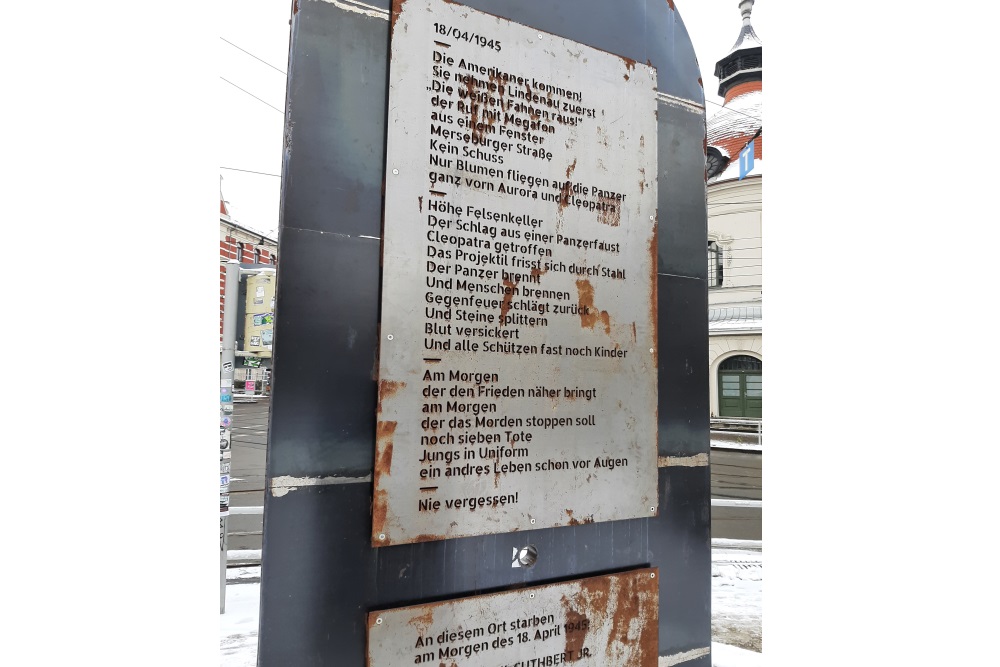 18/04/1945
Die Amerikaner kommen!
Sie nehmen Lindenau zuerst
„Die weißen Fahnen raus!“
der Ruf mit Megafon
aus einem Fenster
Merseburger Straße
Kein Schuss
Nur Blumen fliegen auf die Panzer
ganz vorn Aurora und Cleopatra
Höhe Felsenkeller
Der Schlag aus einer Panzerfaust
Cleopatra getroffen
Das Projektil frisst sich durch Stahl
Der Panzer brennt
Und Menschen brennen
Gegenfeuer schlägt zurück
Und Steine splittern
Blut versickert
Und alle Schützen fast noch Kinder
Am Morgen
der den Frieden näher bringt
am Morgen
der das Morden stoppen soll
noch sieben Tote
Jungs in Uniform
ein andres Leben schon vor Augen
Nie vergessen!
An diesem Ort starben
am Morgen des 18. April 1945:
CUTHBERT JR.